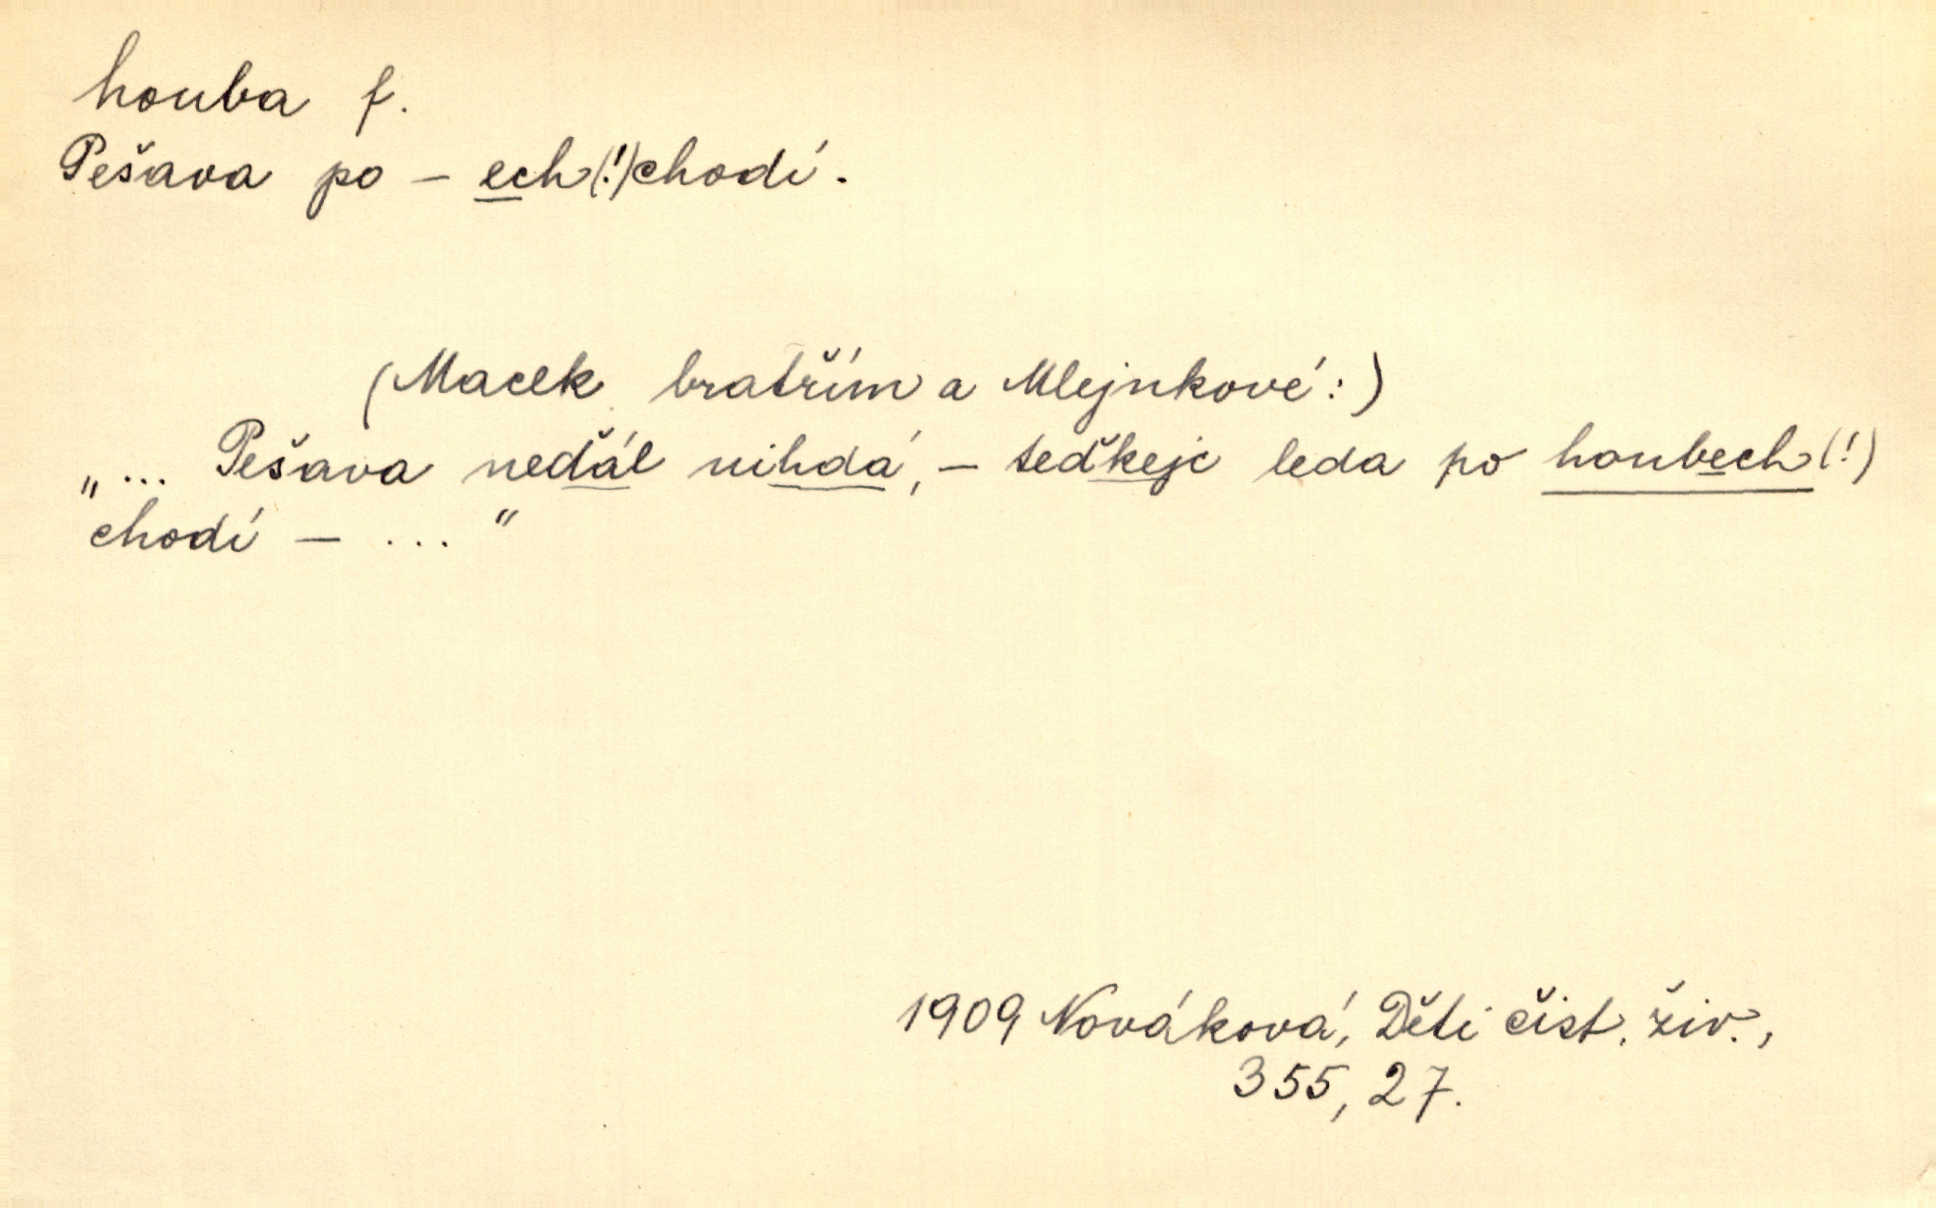 houba f.
Pešava po – ech(!) chodí.
(Macek bratřím a Mlejnkové:)
„... Pešava neďál nihdá, – teďkejc leda po houbech (!)
chodí – ... “
1909 Nováková, Děti čist. živ.,
355, 27.